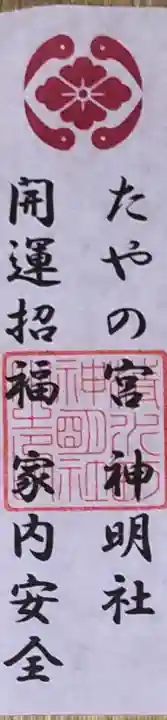 たやの宮神明社
開運招福家内安全